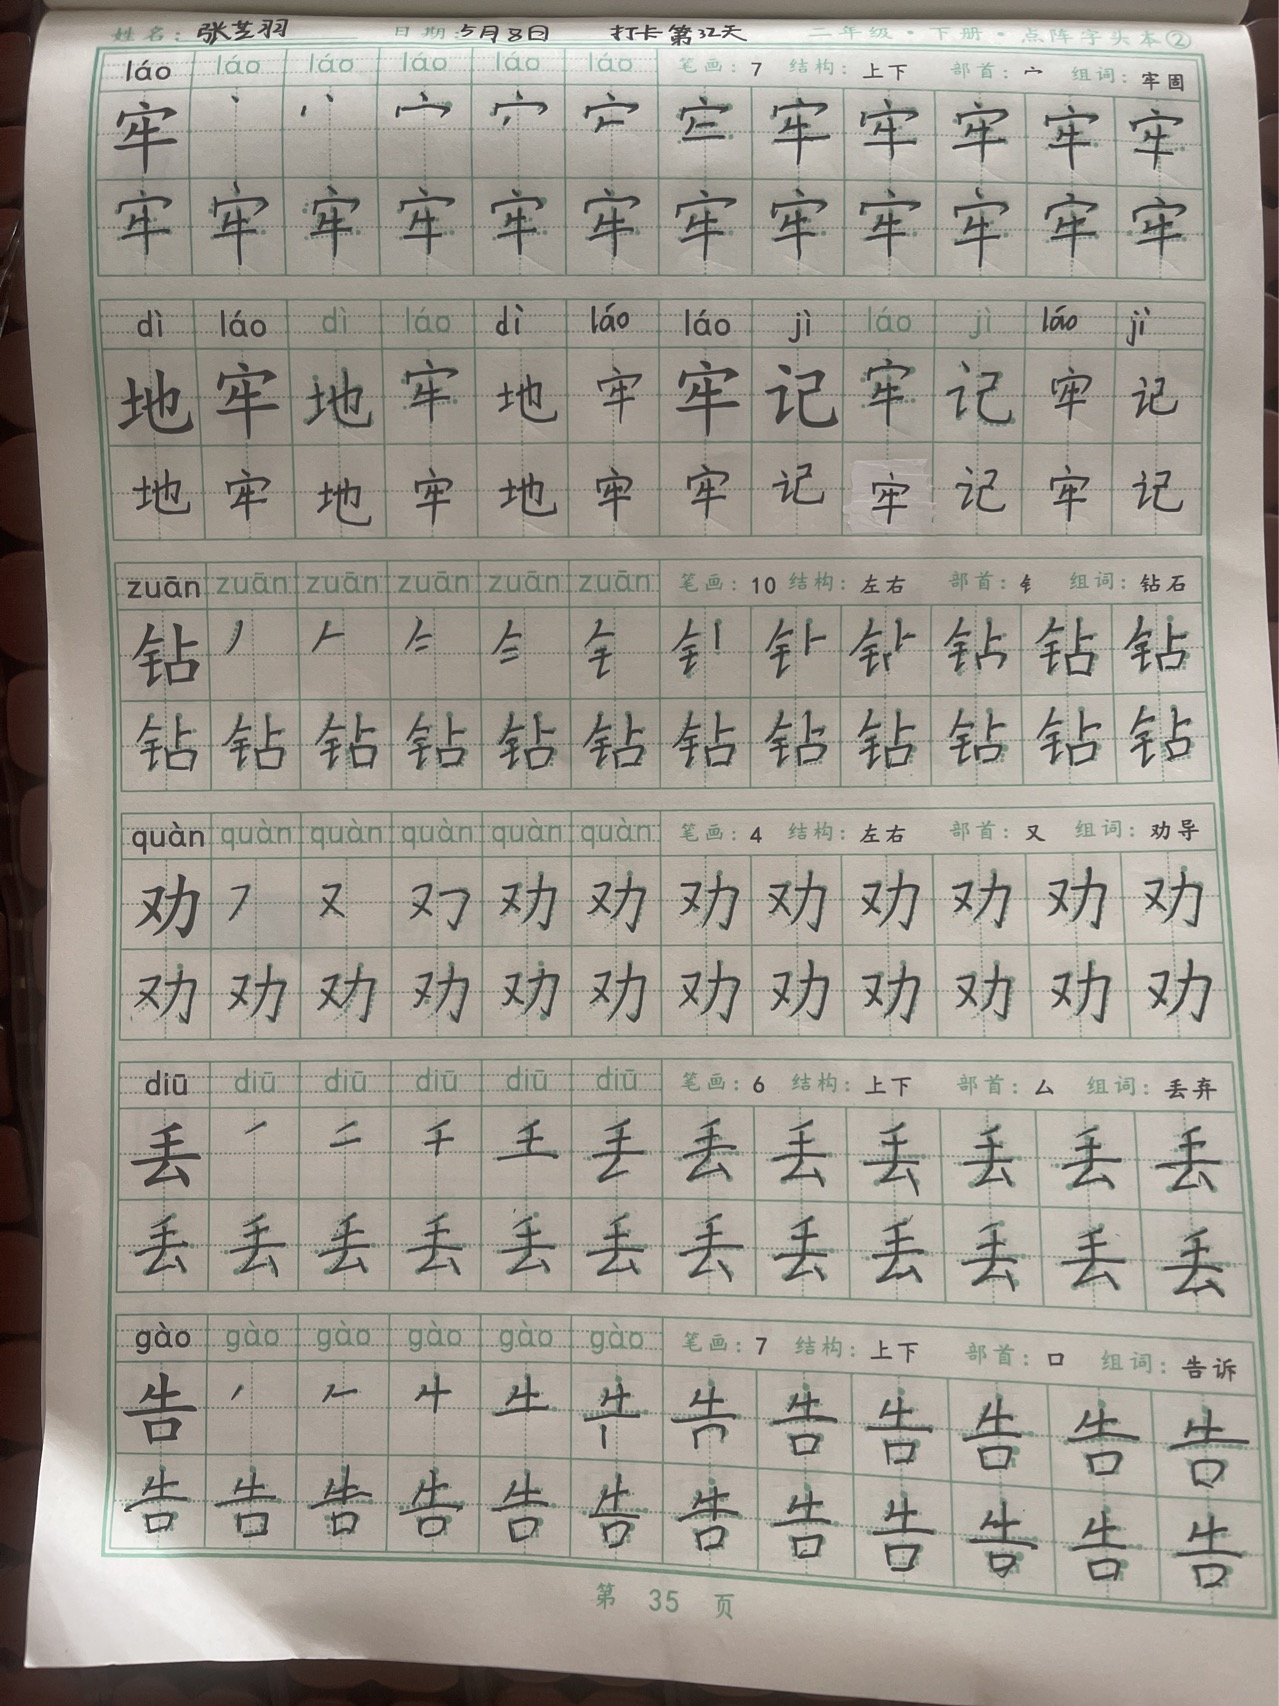 姓名：张芝羽 日期：5月8日 打卡第32天 二年级·下册·点阵字头本②
láo láo láo láo láo láo 笔画：7 结构：上下 部首：宀 组词：牢固
牢 丶 丷 宀 牢 牢 牢 牢 牢
牢 牢 牢 牢 牢 牢 牢 牢 牢 牢 牢 牢
dì láo dì láo dì láo láo jì láo jì láo jì
地 牢 地 牢 地 牢 牢 记 牢 记 牢 记
地 牢 地 牢 地 牢 牢 记 牢 记 牢 记
zuān zuān zuān zuān zuān zuān 笔画：10 结构：左右 部首：钅 组词：钻石
钻 丿 𠂉 钅 钻 钻 钻
钻 钻 钻 钻 钻 钻 钻 钻 钻 钻 钻 钻
quàn quàn quàn quàn quàn quàn 笔画：4 结构：左右 部首：又 组词：劝导
劝 ㇇ 又 劝 劝 劝 劝 劝 劝 劝 劝
劝 劝 劝 劝 劝 劝 劝 劝 劝 劝 劝 劝
diū diū diū diū diū diū 笔画：6 结构：上下 部首：厶 组词：丢弃
丢 丿 二 千 壬 丢 丢 丢 丢 丢 丢
丢 丢 丢 丢 丢 丢 丢 丢 丢 丢 丢 丢
gào gào gào gào gào gào 笔画：7 结构：上下 部首：口 组词：告诉
告 丿 𠂉 告 告 告 告 告
告 告 告 告 告 告 告 告 告 告 告 告
第 35 页